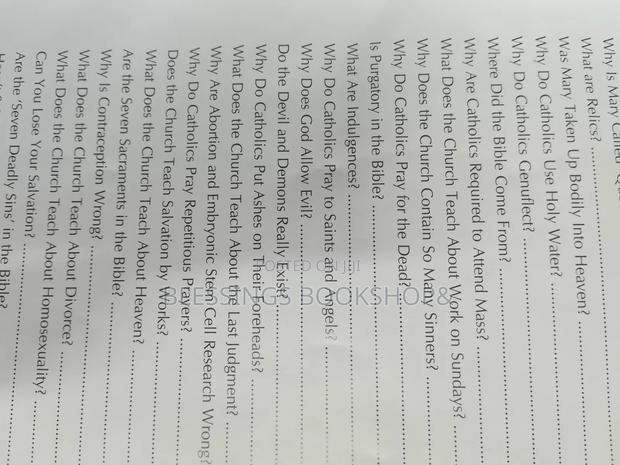 Why Is Mary Called
What are Relics? ..........
Was Mary Taken Up Bodily Into Heaven? ..........
Why Do Catholics Use Holy Water? ..........
Why Do Catholics Genuflect? ..........
Where Did the Bible Come From? ..........
Why Are Catholics Required to Attend Mass? ..........
What Does the Church Teach About Work on Sundays? ..........
Why Does the Church Contain So Many Sinners? ..........
Why Do Catholics Pray for the Dead? ..........
Is Purgatory in the Bible? ..........
What Are Indulgences? ..........
Why Do Catholics Pray to Saints and Angels? ..........
Why Does God Allow Evil? ..........
Do the Devil and Demons Really Exist? ..........
Why Do Catholics Put Ashes on Their Foreheads? ..........
What Does the Church Teach About the Last Judgment? ..........
Why Are Abortion and Embryonic Stem Cell Research Wrong?
Why Do Catholics Pray Repetitious Prayers? ..........
Does the Church Teach Salvation by Works? ..........
What Does the Church Teach About Heaven? ..........
Are the Seven Sacraments in the Bible? ..........
Why Is Contraception Wrong? ..........
What Does the Church Teach About Divorce? ..........
What Does the Church Teach About Homosexuality? ..........
Can You Lose Your Salvation? ..........
Are the 'Seven Deadly Sins' in the Bible?
POSTED ON JIJI
BLESSINGS BOOKSHOP &